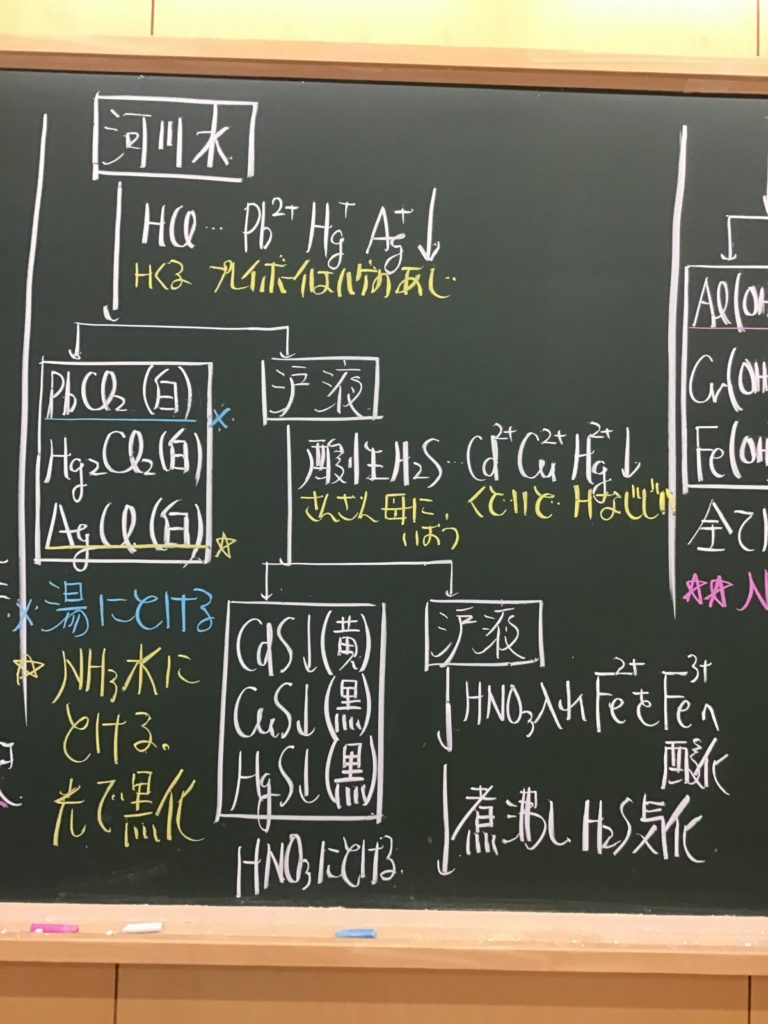 河川水
HCl… Pb²⁺ Hg⁺ Ag⁺↓
Hくる プレイボーイはハゲのあじ
PbCl₂(白)※
Hg₂Cl₂(白)
AgCl(白)☆
沪液
酸性H₂S…Cd²⁺Cu²⁺Hg²⁺↓
さんさん母に、 くどいと Hなじじい
いばつ
※湯にとける
☆NH₃水に
とける。
光で黒化
CdS↓(黄)
CuS↓(黒)
HgS↓(黒)
HNO₃にとける
沪液
HNO₃入れFe²⁺をFe³⁺へ
酸化
煮沸しH₂S気化
Al(OH
Cr(OH
Fe(OH
全て
☆☆N